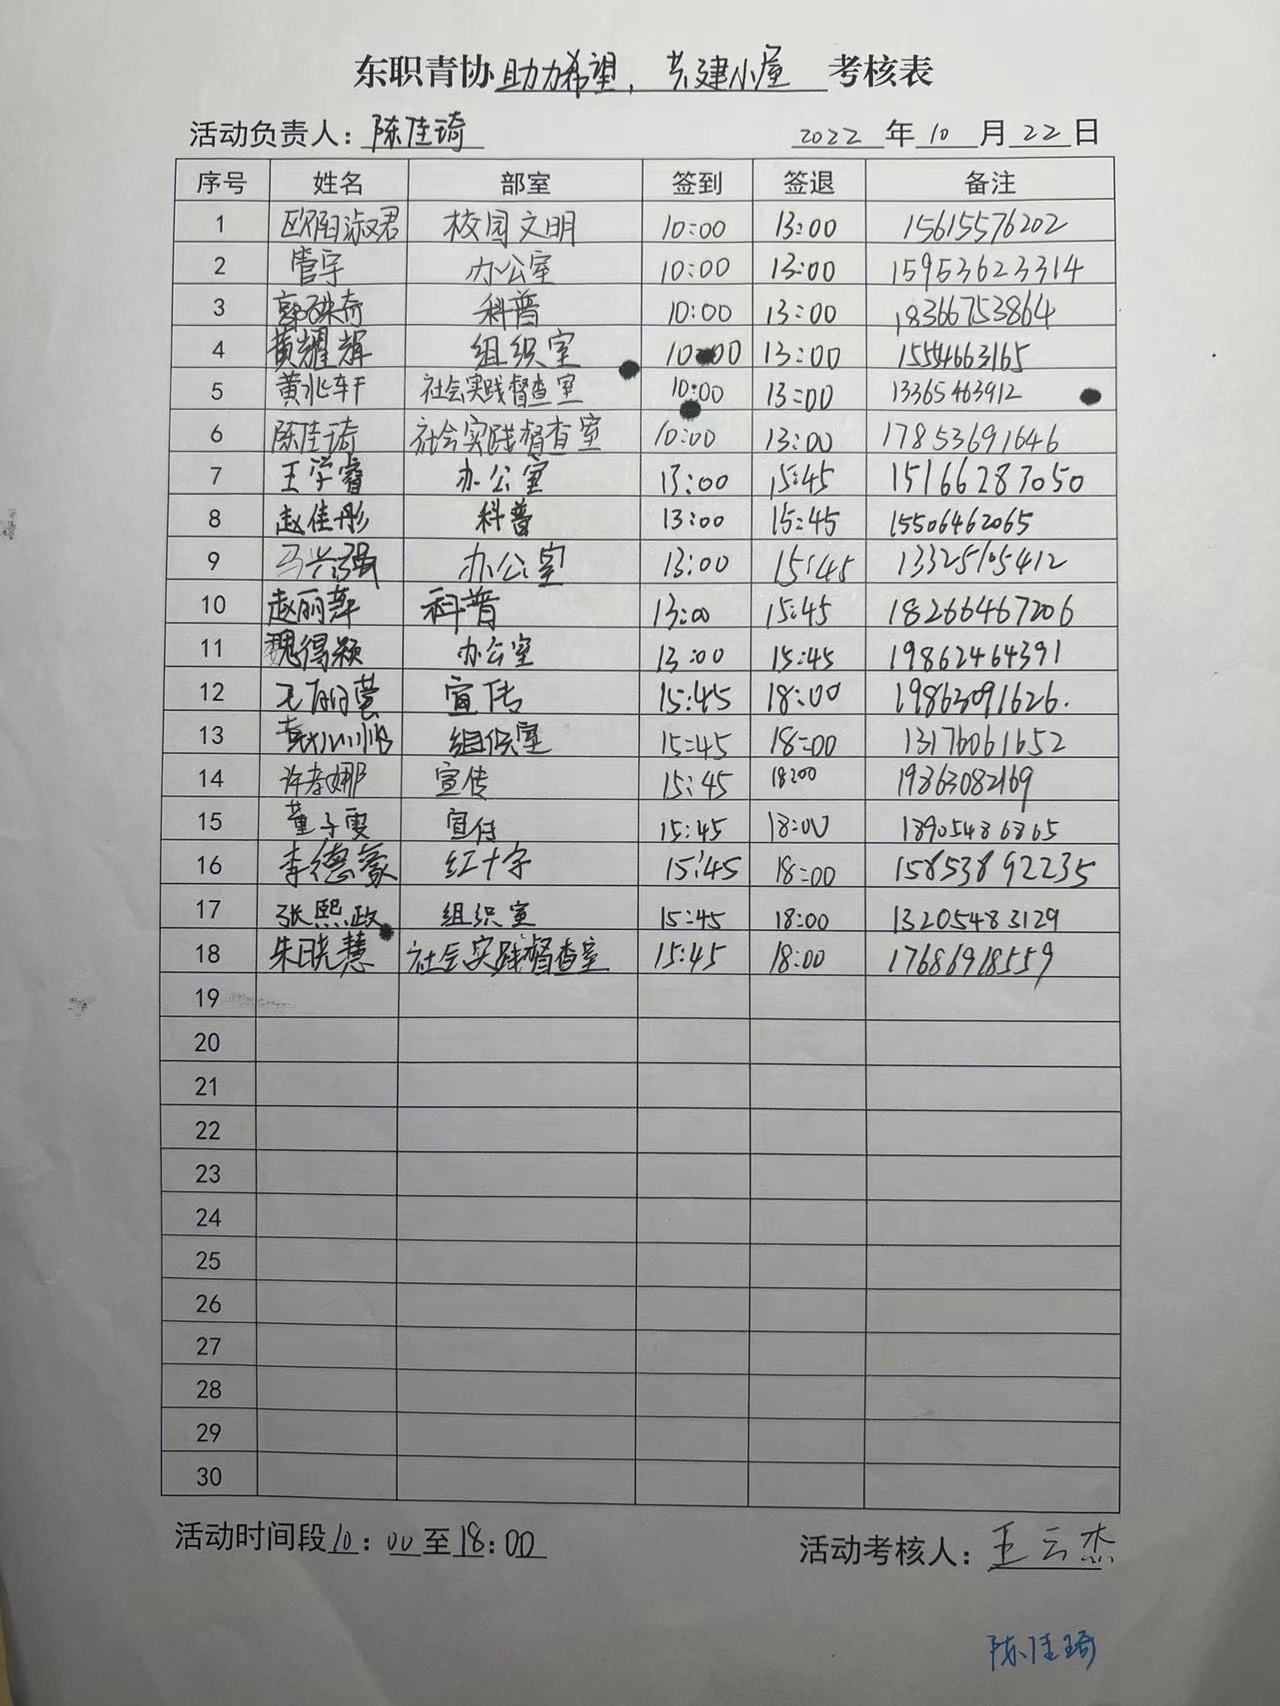 东职青协助力希望，共建小屋 考核表
活动负责人：陈佳琦 2022年10月22日
序号 姓名 部室 签到 签退 备注
1 欧阳淑君 校园文明 10:00 13:00 15615576202
2 管宇 办公室 10:00 13:00 15953623314
3 科普 10:00 13:00 18366753864
4 黄耀辉 组织室 10:00 13:00 15554663165
5 社会实践督查室 10:00 13:00 13365463912
6 陈佳琦 社会实践督查室 10:00 13:00 17853691646
7 王学睿 办公室 13:00 15:45 15166287050
8 赵佳彤 科普 13:00 15:45 15506462065
9 马兴强 办公室 13:00 15:45 13325105412
10 赵丽萍 科普 13:00 15:45 18266467206
11 魏得颖 办公室 13:00 15:45 19862464391
12 宣传 15:45 18:00 19863091626.
13 组织室 15:45 18:00 13176061652
14 许孝娜 宣传 15:45 18:00 19863082169
15 董子雯 宣传 15:45 18:00 18905486865
16 李德豪 红十字 15:45 18:00 15853892235
17 张熙政 组织室 15:45 18:00 13205483129
18 朱晓慧 社会实践督查室 15:45 18:00 17686918559
19
20
21
22
23
24
25
26
27
28
29
30
活动时间段10：00至18：00 活动考核人：王云杰
陈佳琦